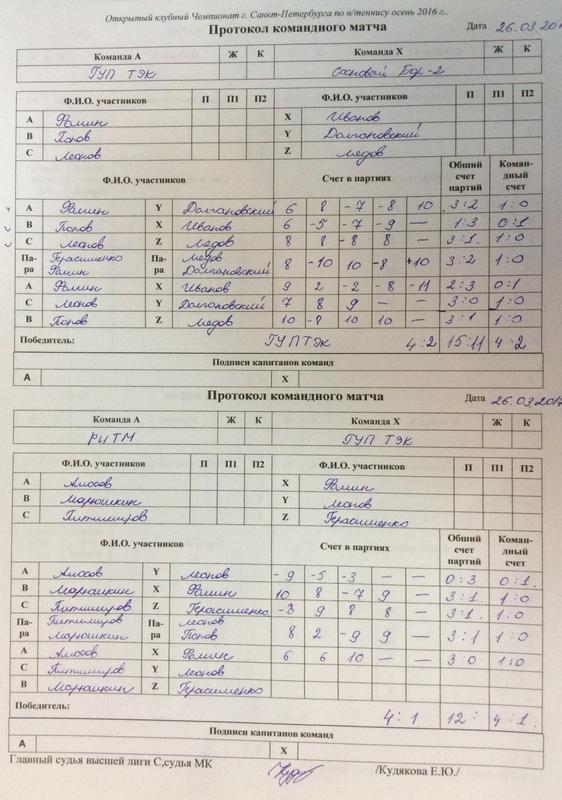 Открытый клубный Чемпионат г. Санкт-Петербурга по н/теннису осень 2016 г..
Протокол командного матча Дата 26.03.201
Команда А Ж К Команда Х Ж К
ГУП ТЭК Сосновый Бор-2
Ф.И.О. участников П П1 П2 Ф.И.О. участников П П1 П2
А Фомин X Иванов
В Попов Y Долгановский
С Леонов Z Медов
Ф.И.О. участников Счет в партиях Общий счет партий Коман-дный счет
А Фомин Y Долгановский 6 8 -7 -8 10 3:2 1:0
В Попов X Иванов 6 -5 -7 -9 — 1:3 0:1
С Леонов Z Медов 8 8 -8 8 — 3:1. 1:0
Па-ра Герасименко Фомин Па-ра Медов Долгановский 8 -10 10 -8 +10 3:2 1:0
А Фомин X Иванов 9 2 -2 -8 -11 2:3 0:1
С Леонов Y Долгановский 7 8 9 — — 3:0 1:0
В Попов Z Медов 10 -8 10 10 — 3:1 1:0
Победитель: ГУПТЭК 4:2 15:11 4:2
Подписи капитанов команд
А Х
Протокол командного матча Дата 26.03.2017
Команда А Ж К Команда Х Ж К
РИТМ ГУП ТЭК
Ф.И.О. участников П П1 П2 Ф.И.О. участников П П1 П2
А Амосов X Фомин
В Марюшкин Y Леонов
С Питимиров Z Герасименко
Ф.И.О. участников Счет в партиях Общий счет партий Коман-дный счет
А Амосов Y Леонов -9 -5 -3 — — 0:3 0:1.
В Марюшкин X Фомин 10 8 -7 9 — 3:1. 1:0
С Питимиров Z Герасименко -3 9 8 8 — 3:1. 1:0
Па-ра Питимиров Марюшкин Па-ра Леонов Попов 8 2 -9 9 — 3:1 1:0
А Амосов X Фомин 6 6 10 — — 3:0 1:0
С Питимиров Y Леонов
В Марюшкин Z Герасименко
Победитель: 4:1 12: 4:1.
Подписи капитанов команд
А Х
Главный судья высшей лиги С,судья МК /Кудякова Е.Ю./